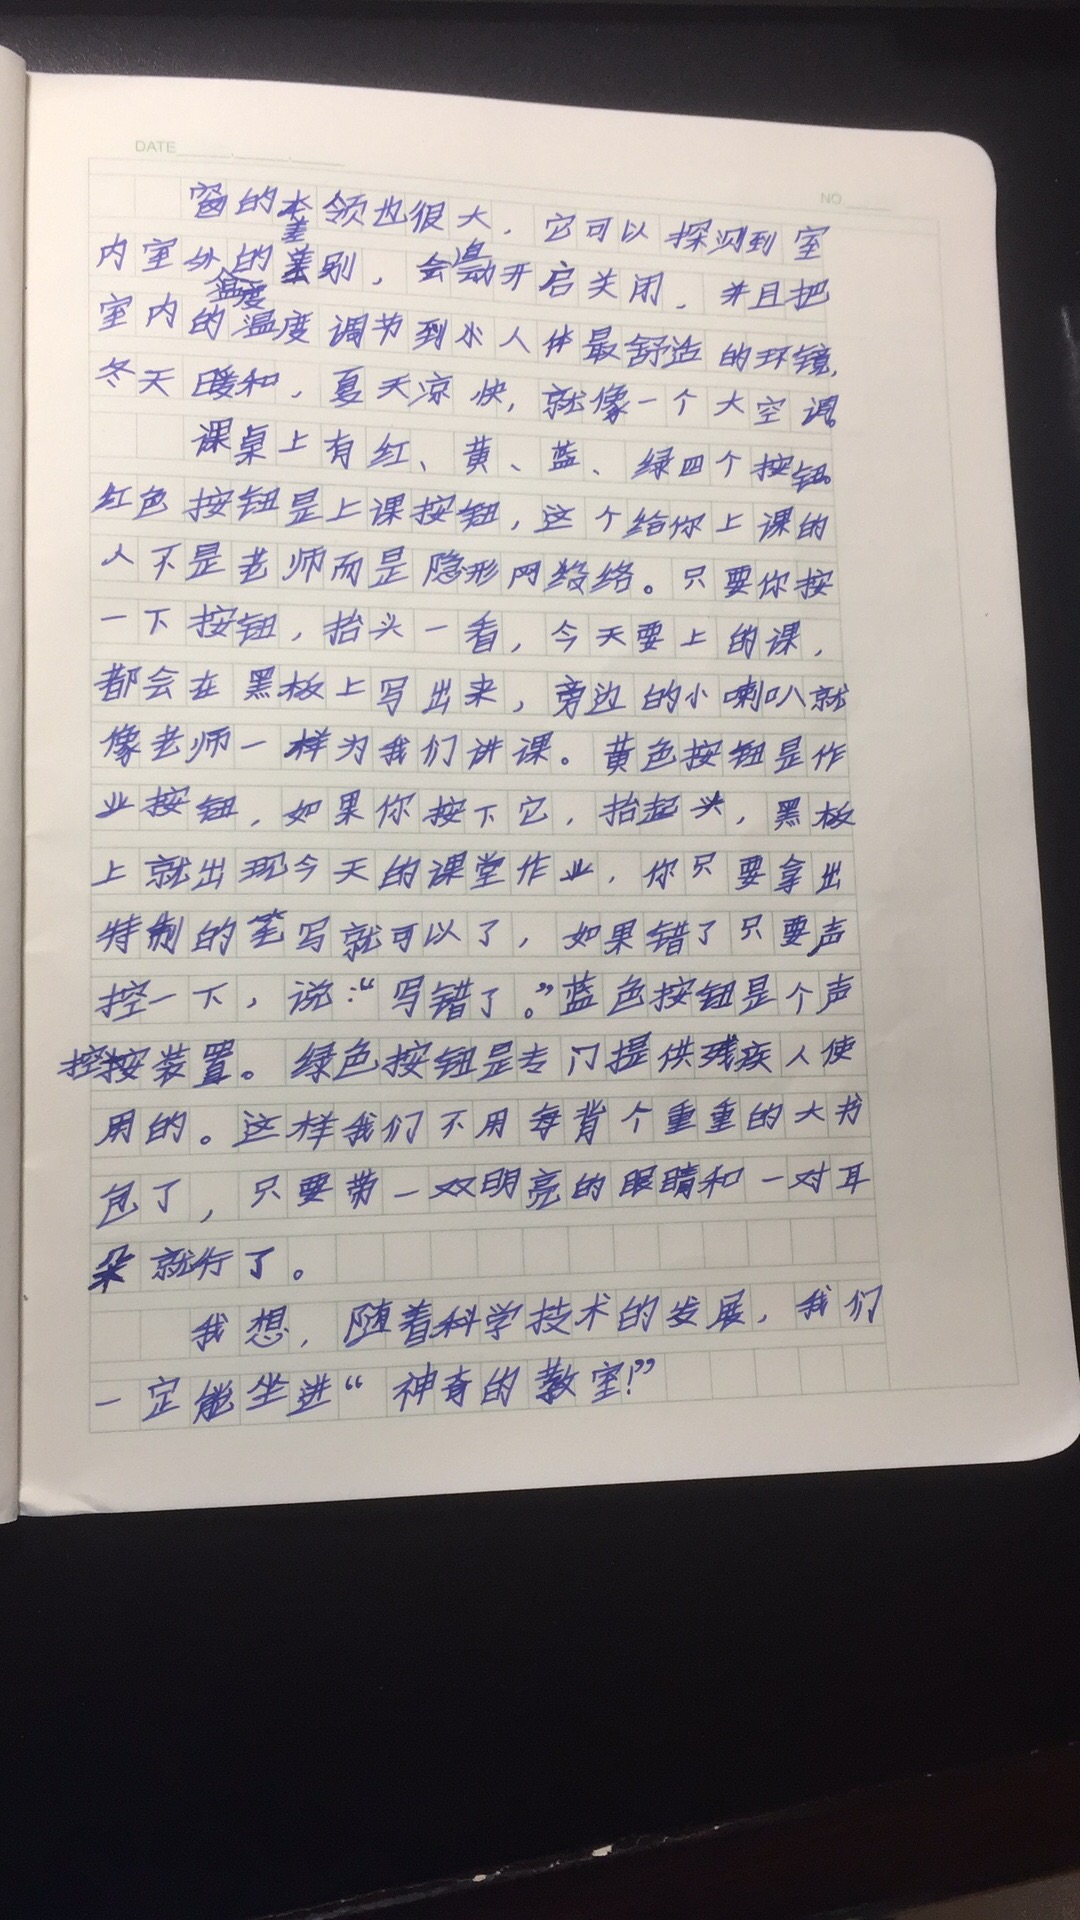 DATE
NO
窗的本领也很大，它可以探测到室
内室外的温度差别，会自动开启关闭，并且把
室内的温度调节到人体最舒适的环镜，
冬天暖和，夏天凉快，就像一个大空调。
课桌上有红、黄、蓝、绿四个按钮。
红色按钮是上课按钮，这个给你上课的
人不是老师而是隐形网络。只要你按
一下按钮，抬头一看，今天要上的课，
都会在黑板上写出来，旁边的小喇叭就
像老师一样为我们讲课。黄色按钮是作
业按钮，如果你按下它，抬起头，黑板
上就出现今天的课堂作业，你只要拿出
特制的笔写就可以了，如果错了只要声
控一下，说：“写错了。”蓝色按钮是个声
控装置。绿色按钮是专门提供残疾人使
用的。这样我们不用每背个重重的大书
包了，只要带一双明亮的眼睛和一对耳
朵就行了。
我想，随着科学技术的发展，我们
一定能坐进“神奇的教室！”